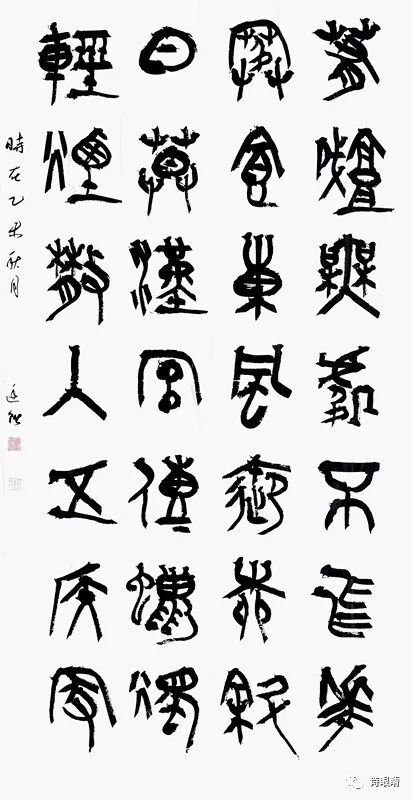 春城無處不飛花
寒食東風御柳斜
日暮漢宮傳蠟燭
輕煙散入五侯家
時在乙未秋月
诗眼睛